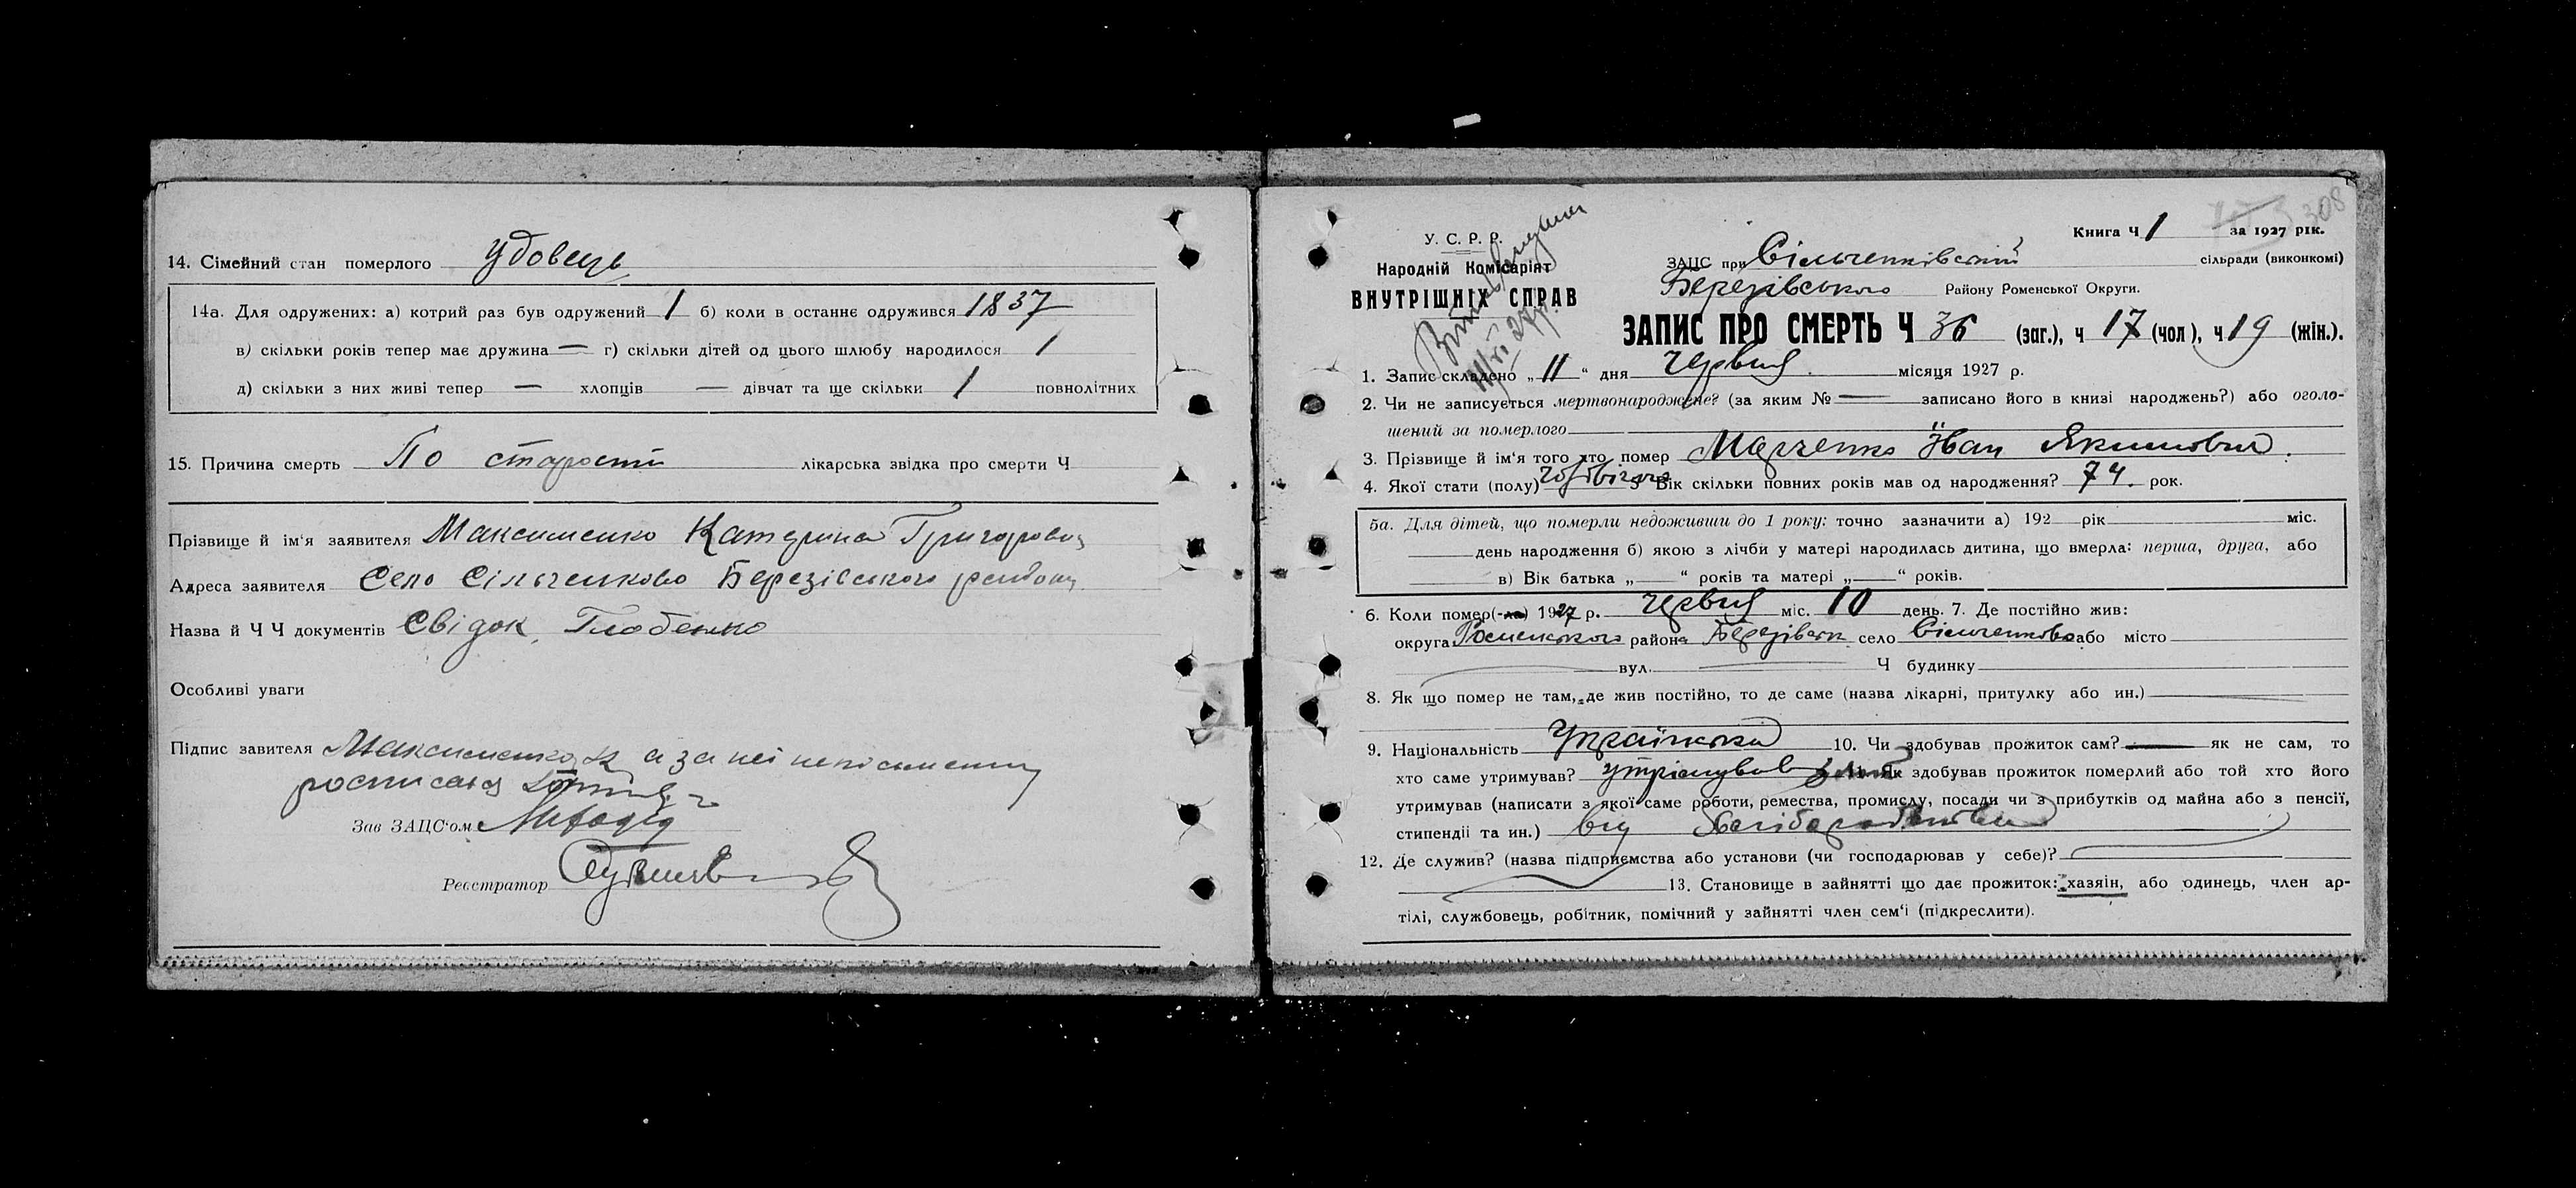 14. Сімейний стан померлого удовець
14а. Для одружених: а) котрий раз був одружений 1 б) коли в останнє одружився 1837
в) скільки років тепер має дружина — г) скільки дітей од цього шлюбу народилося 1
д) скільки з них живі тепер — хлопців — дівчат та ще скільки 1 повнолітних
15. Причина смерть По старости лікарська звідка про смерти Ч
Прізвище й ім'я заявителя Максименко Катерина Григоровна
Адреса заявителя Село Сільченково Березівського району
Назва й Ч Ч документів Свідок Глобенко
Особливі уваги
Підпис завителя Максименко К а за неї неписьменну
росписався
Зав ЗАЦС'ом
Реєстратор
308
У. С. Р. Р.
Народній Комісаріят
ВНУТРІШНІХ СПРАВ
Книга Ч 1 за 1927 рік.
ЗАЦС при Сільченківській сільради (виконкомі)
Березівського Району Роменської Округи.
ЗАПИС ПРО СМЕРТЬ Ч 36 (заг.), ч 17 (чол), ч 19 (жін.).
1. Запис складено „11“ дня червня місяця 1927 р.
2. Чи не записується мертвонароджене? (за яким № — записано його в книзі народжень?) або оголо-
шений за померлого
3. Прізвище й ім'я того хто помер Марченко Іван Якимович.
4. Якої стати (полу) чоловічого 5 Вік скільки повних років мав од народження? 74. рок.
5а. Для дітей, що померли недоживши до 1 року: точно зазначити а) 192 рік міс.
день народження б) якою з лічби у матері народилась дитина, що вмерла: перша, друга, або
в) Вік батька „—“ років та матері „—“ років.
6. Коли помер(-ла) 1927 р. червня міс. 10 день. 7. Де постійно жив:
округа Роменського района Березівськ село Сільченково або місто
вул. Ч будинку
8. Як що помер не там, де жив постійно, то де саме (назва лікарні, притулку або ин.)
9. Національність Українська 10. Чи здобував прожиток сам? — як не сам, то
хто саме утримував? утрімував 11. Як здобував прожиток померлий або той хто його
утримував (написати з якої саме роботи, ремества, промислу, посади чи з прибутків од майна або з пенсії,
стипендіі та ин.) від Хліборобства
12. Де служив? (назва підприємства або установи (чи господарював у себе)?
13. Становище в зайнятті що дає прожиток: хазяін, або одинець, член ар-
тілі, службовець, робітник, помічний у зайнятті член сем'і (підкреслити).